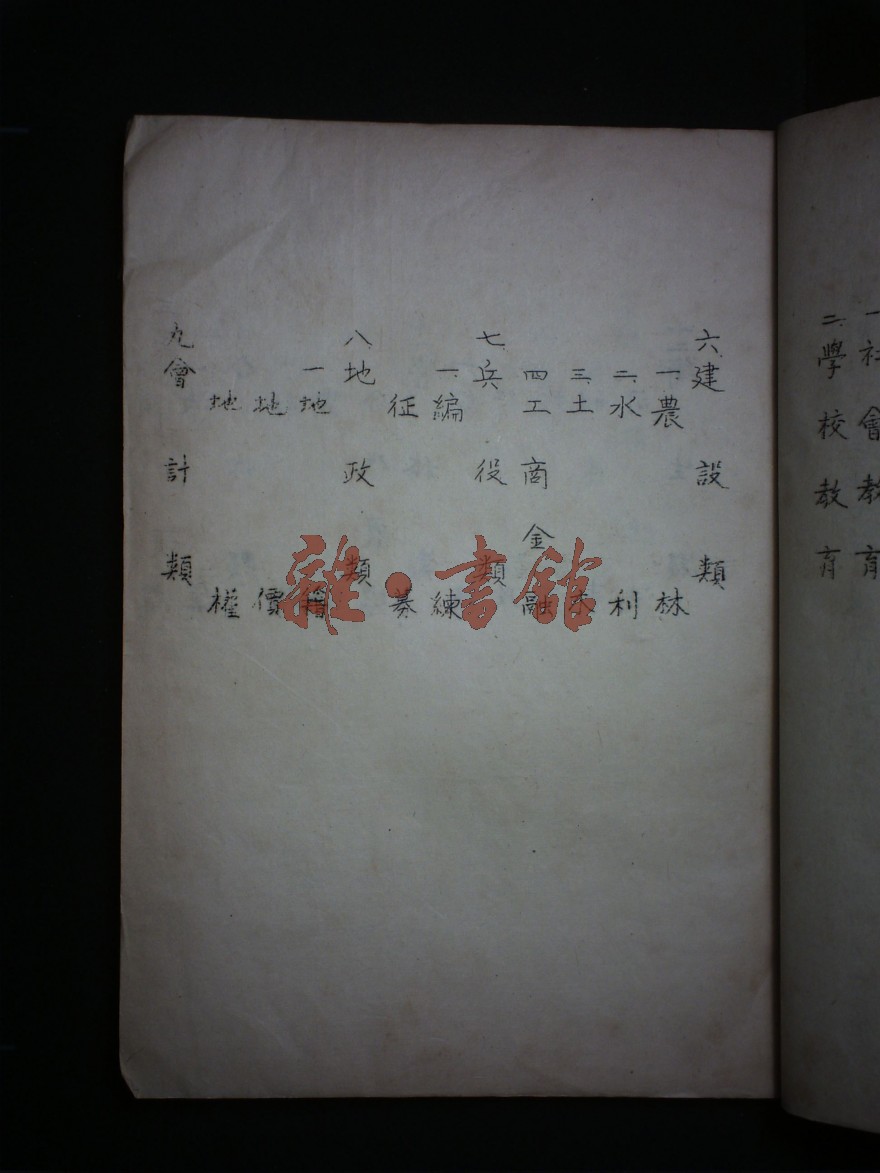 一社會教育
二、學校教育
六、建設類
一、農林
二、水利
三、土木
四工商金融
七、兵役類
一、編練
征募
八、地政類
一地籍
地價
地權
九會計類
雜·書館